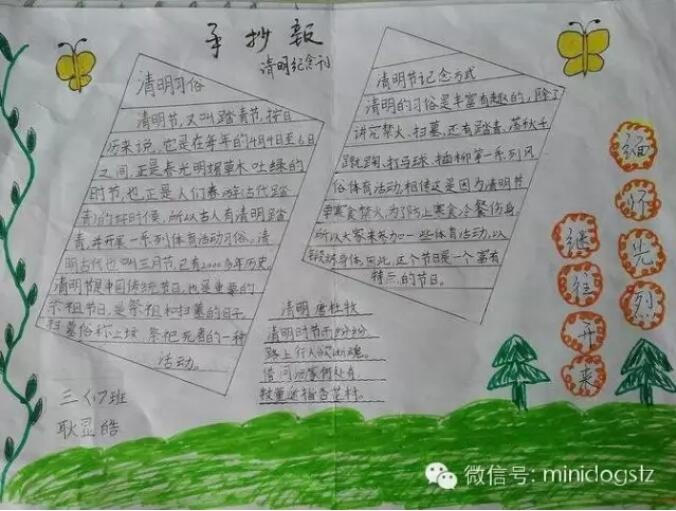 手抄报
清明纪念刊
清明习俗
清明节,又叫踏青节,按日
历来说,它是在每年的4月4日至6日
之间,正是春光明媚草木吐绿的
时节,也正是人们春游古代踏
青的好时候,所以古人有清明踏
青,并开展一系列体育活动习俗,清
明古代也叫三月节,已有2000多年历史
清明节是中国传统节日,也是重要的
祭祖节日,是祭祖和扫墓的日子
扫墓俗称上坟 祭祀死者的一种
活动。
三(7)班
耿显皓
清明节记念方式
清明的习俗是丰富有趣的,除了
讲究禁火、扫墓,还有踏青、荡秋千
蹴鞠、打马球、插柳第一系列风
俗体育活动,相传这是因为清明节
要寒食禁火,为了防止寒食冷餐伤身,
所以大家来参加一些体育活动,以
锻炼身体,因此,这个节日是一个富有
特点的节日。
清明 唐杜牧
清明时节雨纷纷
路上行人欲断魂。
借问酒家何处有
牧童遥指杏花村。
缅怀先烈
继往开来
微信号: minidogstz